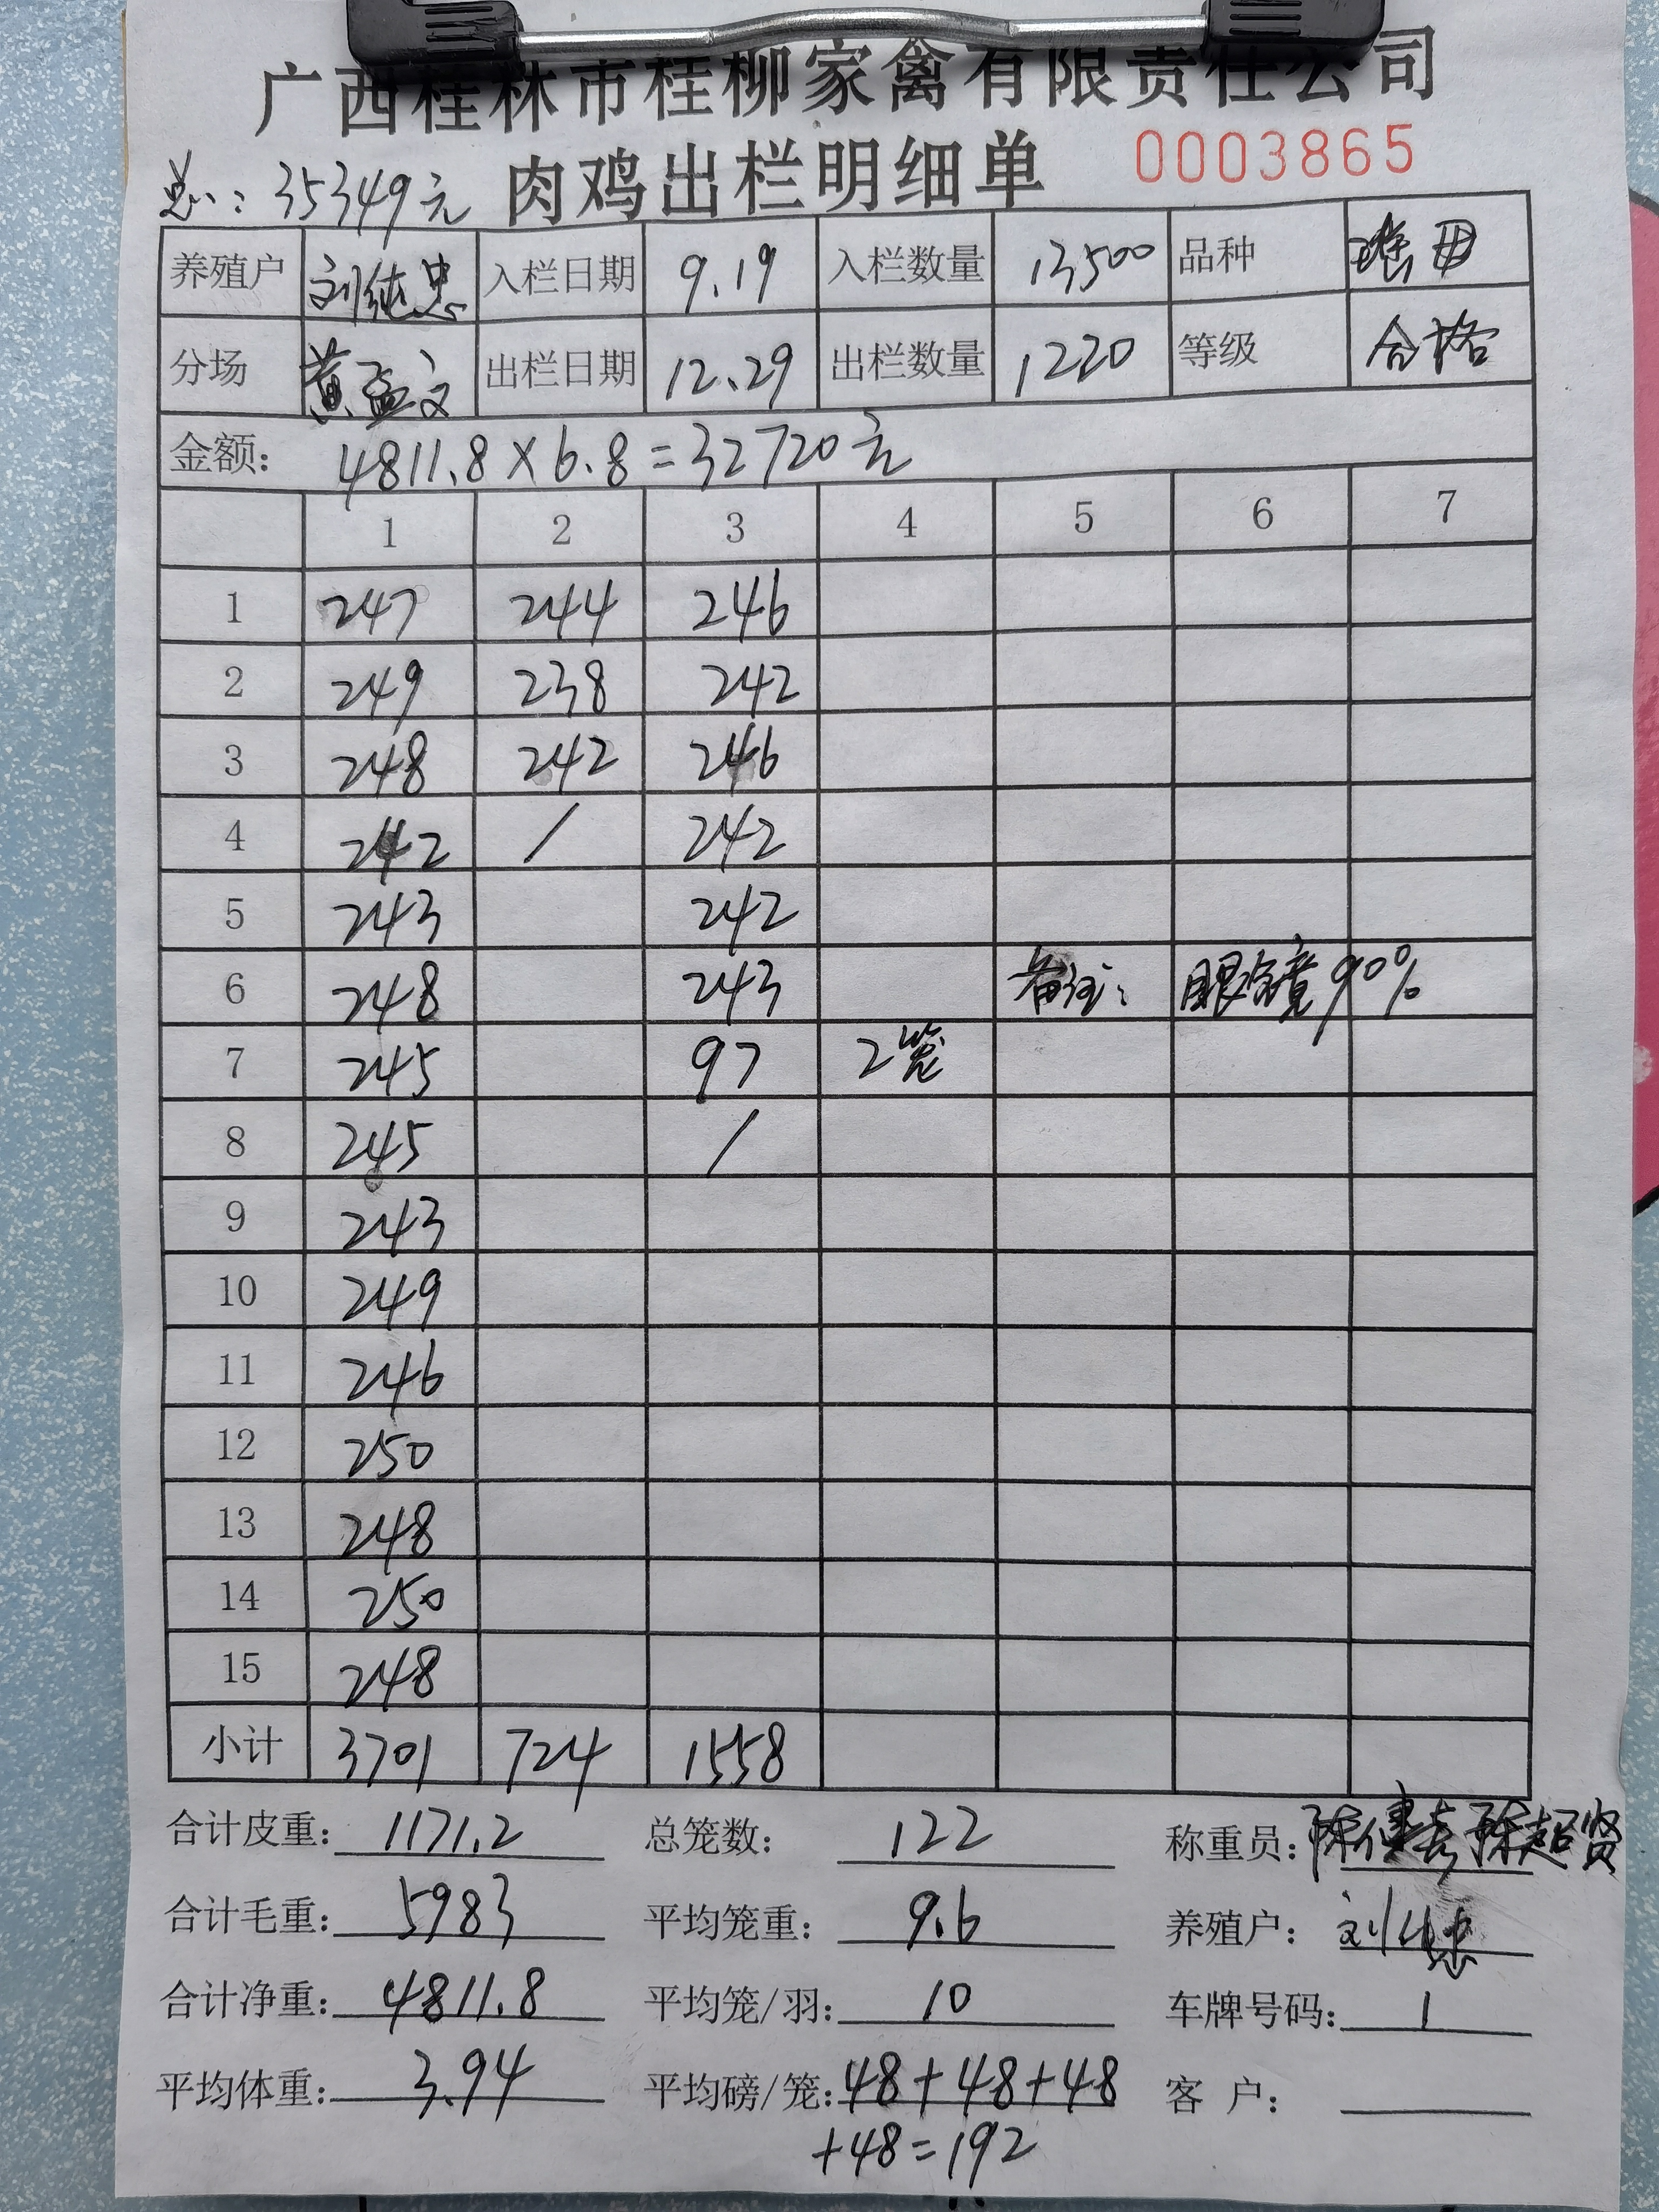 广西桂林市桂柳家禽有限责任公司
肉鸡出栏明细单 0003865
总: 35349元
养殖户 刘纯忠 入栏日期 9.19 入栏数量 13500 品种
分场 黄孟文 出栏日期 12.29 出栏数量 1220 等级 合格
金额: 4811.8×6.8=32720元
1 2 3 4 5 6 7
1 247 244 246
2 249 238 242
3 248 242 246
4 242 / 242
5 243 242
6 248 243 备注: 眼镜90%
7 245 97 2笼
8 245 /
9 243
10 249
11 246
12 250
13 248
14 250
15 248
小计 3701 724 1558
合计皮重: 1171.2 总笼数: 122 称重员: 陈超贤
合计毛重: 5983 平均笼重: 9.6 养殖户: 刘纯忠
合计净重: 4811.8 平均笼/羽: 10 车牌号码: 1
平均体重: 3.94 平均磅/笼: 48+48+48 客 户:
+48=192